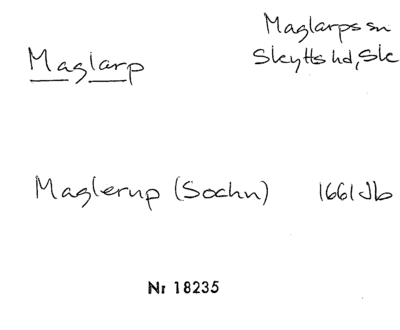 Maglarps sn
Maglarp
Skytts hd, Sk
Maglerup (Sochn) 1661 Jb
Nr 18235